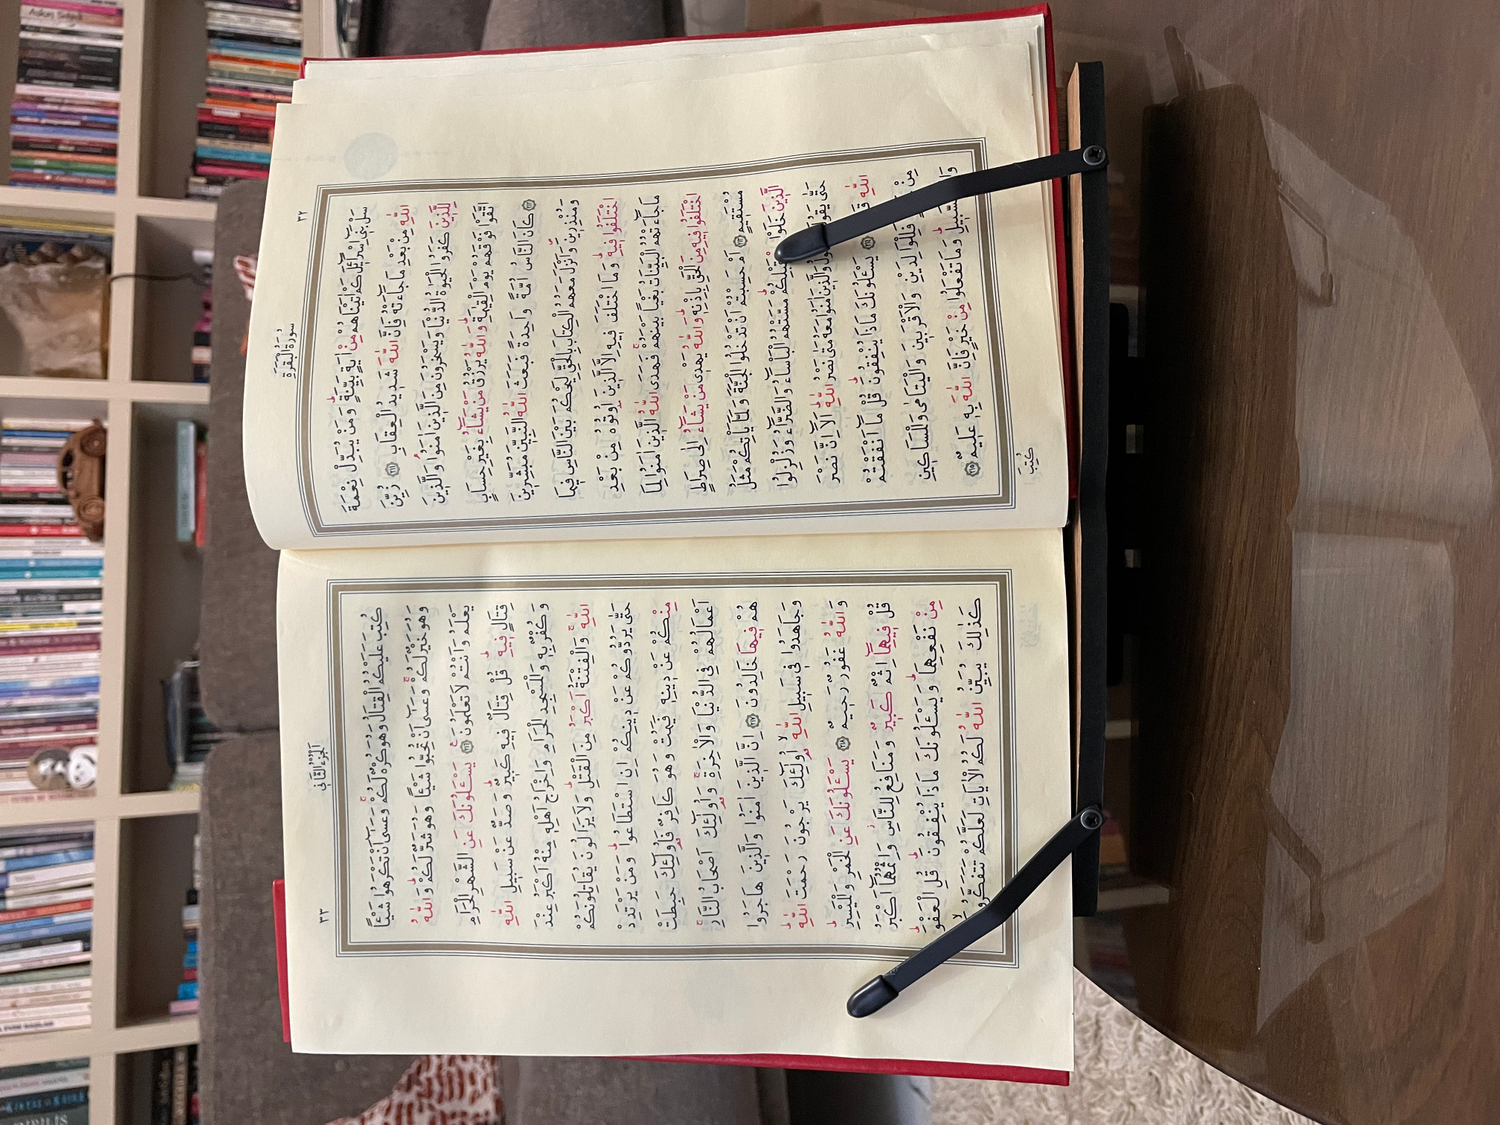 ٣٢
سورة البقرة
سَلْ بَنٖٓي اِسْرَٓائٖلَ كَمْ اٰتَيْنَاهُمْ مِنْ اٰيَةٍ بَيِّنَةٍ وَمَنْ يُبَدِّلْ نِعْمَةَ
اللّٰهِ مِنْ بَعْدِ مَا جَٓاءَتْهُ فَاِنَّ اللّٰهَ شَدٖيدُ الْعِقَابِ ﴿٢١١﴾ زُيِّنَ
لِلَّذٖينَ كَفَرُوا الْحَيٰوةُ الدُّنْيَا وَيَسْخَرُونَ مِنَ الَّذٖينَ اٰمَنُوا وَالَّذٖينَ
اتَّقَوْا فَوْقَهُمْ يَوْمَ الْقِيٰمَةِ وَاللّٰهُ يَرْزُقُ مَنْ يَشَٓاءُ بِغَيْرِ حِسَابٍ
﴿٢١٢﴾ كَانَ النَّاسُ اُمَّةً وَاحِدَةً فَبَعَثَ اللّٰهُ النَّبِيّٖنَ مُبَشِّرٖينَ
وَمُنْذِرٖينَ وَاَنْزَلَ مَعَهُمُ الْكِتَابَ بِالْحَقِّ لِيَحْكُمَ بَيْنَ النَّاسِ فٖيمَا
اخْتَلَفُوا فٖيهِ وَمَا اخْتَلَفَ فٖيهِ اِلَّا الَّذٖينَ اُو۫تُوهُ مِنْ بَعْدِ
مَا جَٓاءَتْهُمُ الْبَيِّنَاتُ بَغْيًا بَيْنَهُمْ فَهَدَى اللّٰهُ الَّذٖينَ اٰمَنُوا لِمَا
اخْتَلَفُوا فٖيهِ مِنَ الْحَقِّ بِاِذْنِهٖ وَاللّٰهُ يَهْدٖي مَنْ يَشَٓاءُ اِلٰى صِرَاطٍ
مُسْتَقٖيمٍ ﴿٢١٣﴾ اَمْ حَسِبْتُمْ اَنْ تَدْخُلُوا الْجَنَّةَ وَلَمَّا يَأْتِكُمْ مَثَلُ
الَّذٖينَ خَلَوْا قَبْلِكُمْ مَسَّتْهُمُ الْبَأْسَٓاءُ وَالضَّرَّٓاءُ وَزُلْزِلُوا
حَتّٰى يَقُولَ وَالَّذٖينَ اٰمَنُوا مَعَهُ مَتٰى نَصْرُ اللّٰهِ اَلَٓا اِنَّ نَصْرَ
اللّٰهِ ﴿٢١٤﴾ يَسْـَٔلُونَكَ مَاذَا يُنْفِقُونَ قُلْ مَٓا اَنْفَقْتُمْ
مِنْ فَلِلْوَالِدَيْنِ وَالْاَقْرَبٖينَ وَالْيَتَامٰى وَالْمَسَاكٖينِ
وَابْنِ السَّبٖيلِ وَمَا تَفْعَلُوا مِنْ خَيْرٍ فَاِنَّ اللّٰهَ بِهٖ عَلٖيمٌ ﴿٢١٥﴾
كُتِبَ
الجزء الثاني
٣٣
كُتِبَ عَلَيْكُمُ الْقِتَالُ وَهُوَ كُرْهٌ لَكُمْ وَعَسٰٓى اَنْ تَكْرَهُوا شَيْـًٔا
وَهُوَ خَيْرٌ لَكُمْ وَعَسٰٓى اَنْ تُحِبُّوا شَيْـًٔا وَهُوَ شَرٌّ لَكُمْ وَاللّٰهُ
يَعْلَمُ وَاَنْتُمْ لَا تَعْلَمُونَ ﴿٢١٦﴾ يَسْـَٔلُونَكَ عَنِ الشَّهْرِ الْحَرَامِ
قِتَالٍ فٖيهِ قُلْ قِتَالٌ فٖيهِ كَبٖيرٌ وَصَدٌّ عَنْ سَبٖيلِ اللّٰهِ
وَكُفْرٌ بِهٖ وَالْمَسْجِدِ الْحَرَامِ وَاِخْرَاجُ اَهْلِهٖ مِنْهُ اَكْبَرُ عِنْدَ
اللّٰهِ وَالْفِتْنَةُ اَكْبَرُ مِنَ الْقَتْلِ وَلَا يَزَالُونَ يُقَاتِلُونَكُمْ
حَتّٰى يَرُدُّوكُمْ عَنْ دٖينِكُمْ اِنِ اسْتَطَاعُوا وَمَنْ يَرْتَدِدْ
مِنْكُمْ عَنْ دٖينِهٖ فَيَمُتْ وَهُوَ كَافِرٌ فَاُو۬لٰٓئِكَ حَبِطَتْ
اَعْمَالُهُمْ فِي الدُّنْيَا وَالْاٰخِرَةِ وَاُو۬لٰٓئِكَ اَصْحَابُ النَّارِ
هُمْ فٖيهَا خَالِدُونَ ﴿٢١٧﴾ اِنَّ الَّذٖينَ اٰمَنُوا وَالَّذٖينَ هَاجَرُوا
وَجَاهَدُوا فٖي سَبٖيلِ اللّٰهِ اُو۬لٰٓئِكَ يَرْجُونَ رَحْمَتَ اللّٰهِ
وَاللّٰهُ غَفُورٌ رَحٖيمٌ ﴿٢١٨﴾ يَسْـَٔلُونَكَ عَنِ الْخَمْرِ وَالْمَيْسِرِ
قُلْ فٖيهِمَٓا اِثْمٌ كَبٖيرٌ وَمَنَافِعُ لِلنَّاسِ وَاِثْمُهُمَٓا اَكْبَرُ
مِنْ نَفْعِهِمَا وَيَسْـَٔلُونَكَ مَاذَا يُنْفِقُونَ قُلِ الْعَفْوَ
كَذٰلِكَ يُبَيِّنُ اللّٰهُ لَكُمُ الْاٰيَاتِ لَعَلَّكُمْ تَتَفَكَّرُونَ